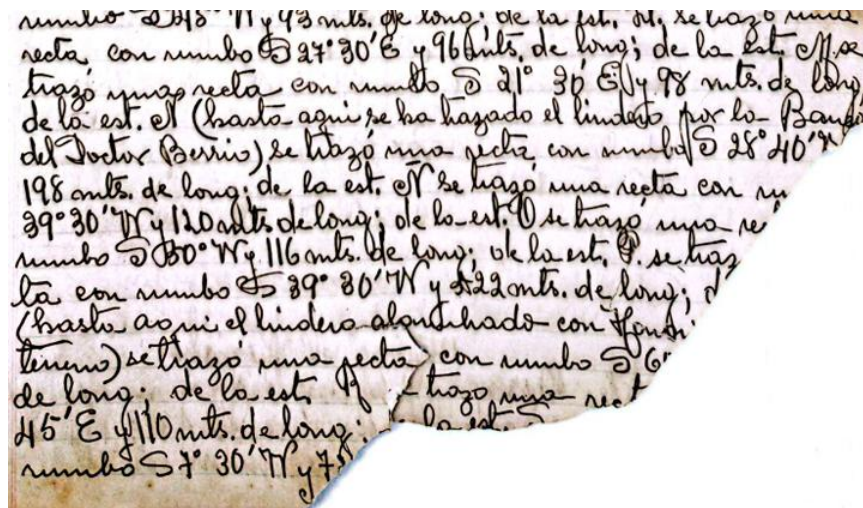 rumbo S 45° W y 93 mts. de long; de la est. M. se trazó una
recta, con rumbo S 27° 30' E y 96 mts. de long; de la est. M se
trazó una recta con rumbo S 21° 30' E y 98 mts. de long
de la est. N (hasta aqui se ha trazado el lindero por la Banda
del Doctor Berrio) se trazó una recta, con rumbo S 28° 40' W
198 mts. de long; de la est. Ñ se trazó una recta con
39° 30' W y 120 mts de long; de la est. O se trazó una
rumbo S 30° W y 116 mts. de long; de la est. P. se
ta con rumbo S 39° 30' W y 222 mts. de long;
(hasta aqui el lindero con
terreno) se trazó una recta, con rumbo S
de long; de la est. R trazo una rect
45' E y 110 mts. de long; la est
rumbo S 7° 30' W y 7